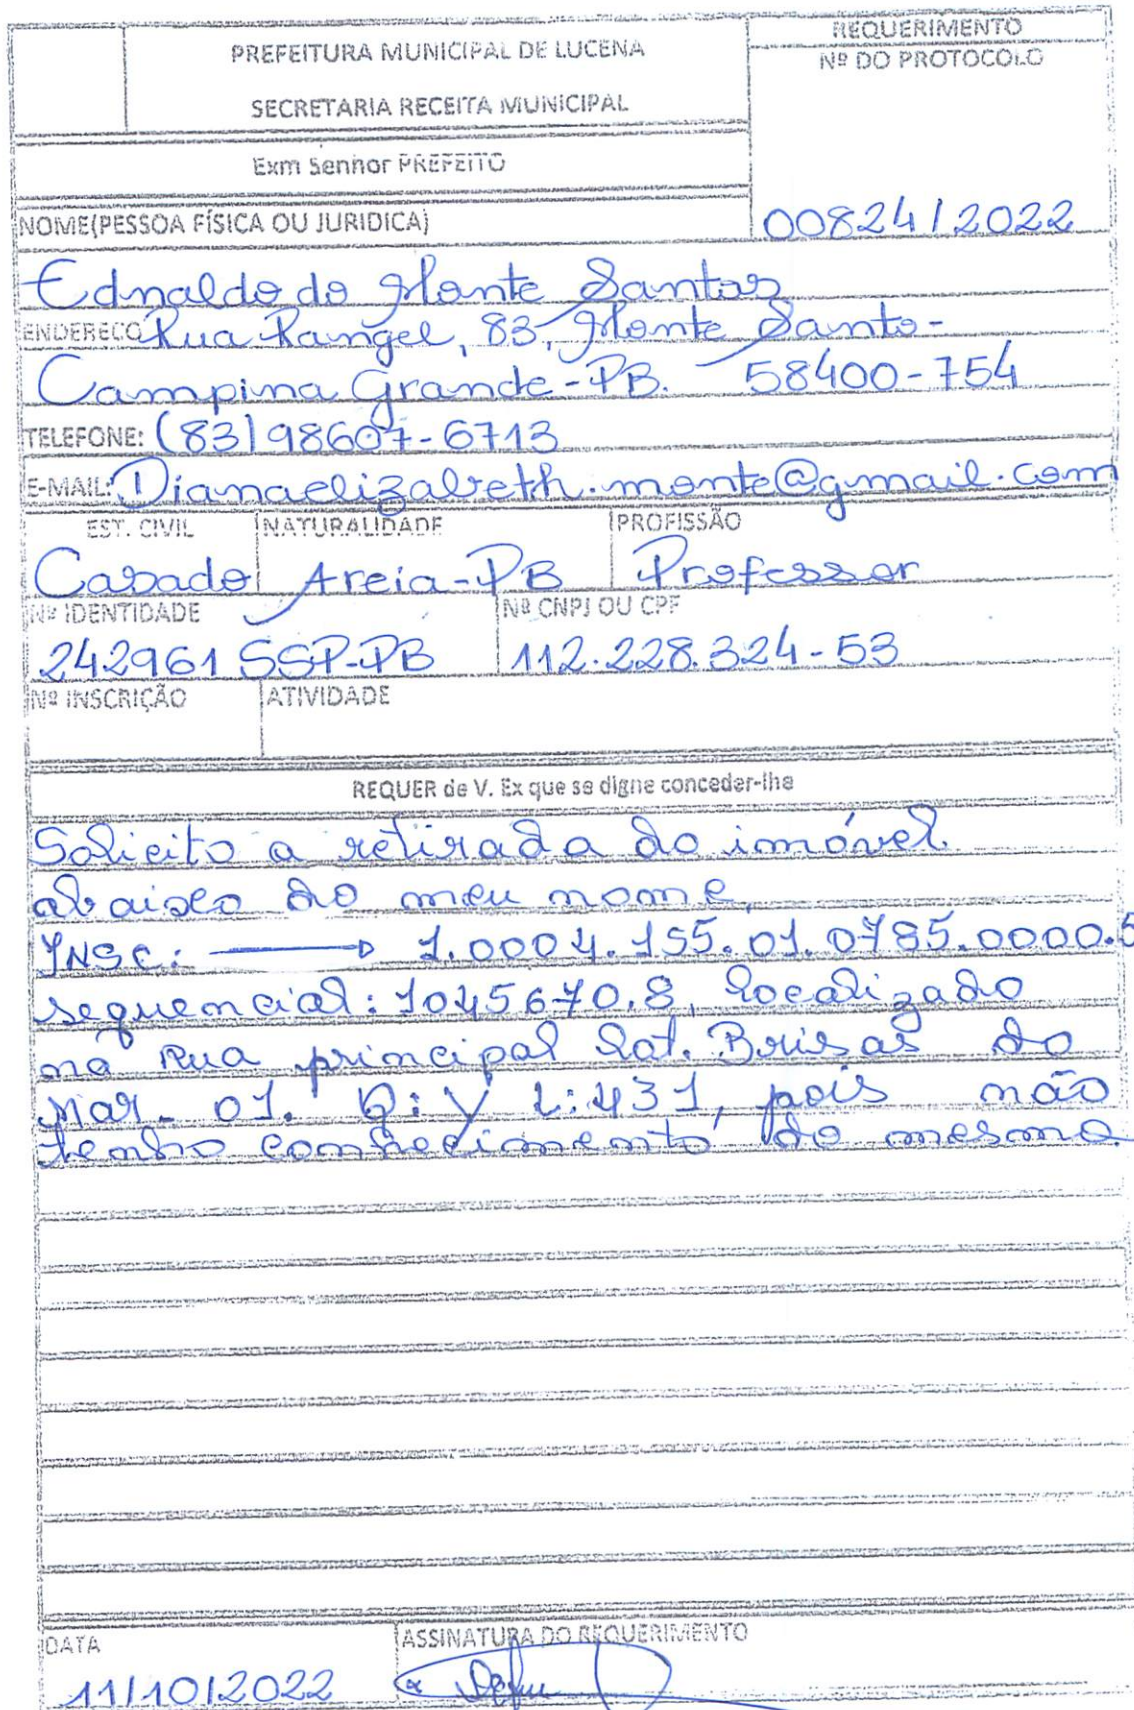 REQUERIMENTO
PREFEITURA MUNICIPAL DE LUCENA
Nº DO PROTOCOLO
SECRETARIA RECEITA MUNICIPAL
Exm Senhor PREFEITO
NOME(PESSOA FÍSICA OU JURIDICA)
00824/2022
Ednaldo do Monte Santos
ENDEREÇO Rua Rangel, 83, Monte Santo-
Campina Grande-PB. 58400-754
TELEFONE: (83)98607-6713
E-MAIL: Dianaelizabeth.monte@gmail.com
EST. CIVIL NATURALIDADE PROFISSÃO
Casado Areia-PB Professor
Nº IDENTIDADE Nº CNPJ OU CPF
242961 SSP-PB 112.228.324-53
Nº INSCRIÇÃO ATIVIDADE
REQUER de V. Ex que se digne conceder-lhe
Solicito a retirada do imóvel
abaixo do meu nome,
INSC: → 1.0004.155.01.0785.0000.5
sequencial: 1045670.8, localizado
na Rua principal Lot. Brisas do
Mar- 01. Q: Y L: 431, pois não
tenho conhecimento do mesmo.
DATA ASSINATURA DO REQUERIMENTO
11/10/2022